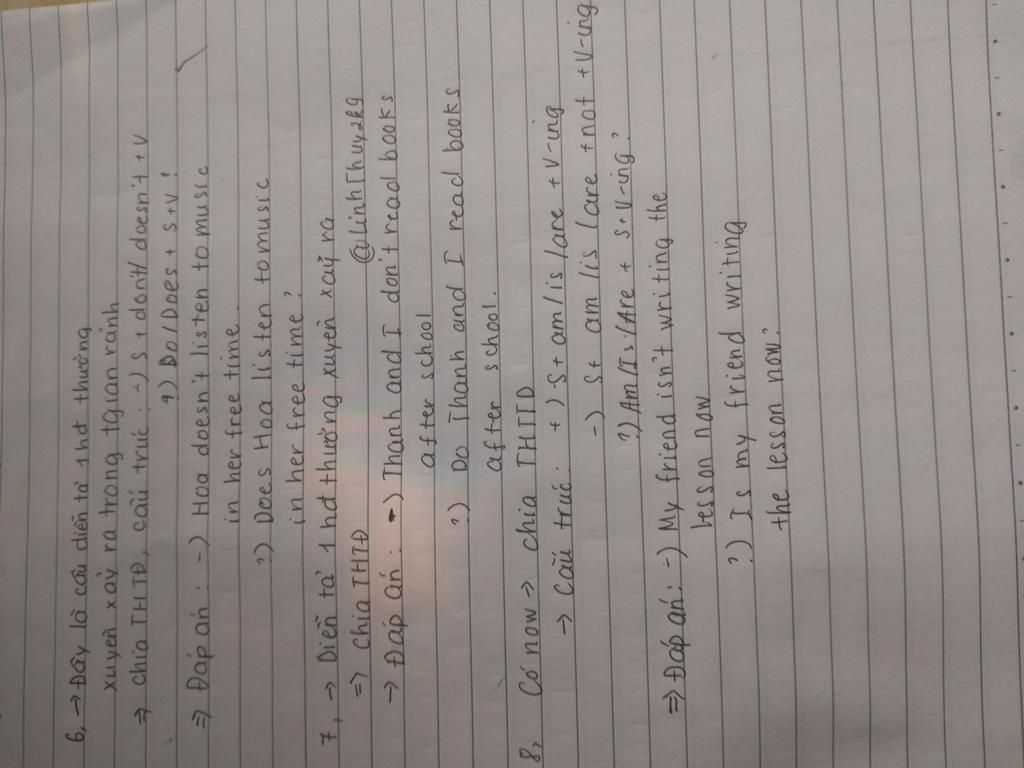 6, → Đây là câu diễn tả 1 hđ thường
xuyên xảy ra trong tgian rảnh
⇒ chia THTĐ, cấu trúc : -) S + don't/ doesn't + V
?) Do/Does + S+V?
⇒ Đáp án : -) Hoa doesn't listen to music
in her free time.
?) Does Hoa listen to music
in her free time?
7, → Diễn tả 1 hđ thường xuyên xảy ra
⇒ chia THTĐ @LinhThuy2k9
→ Đáp án : -) Thanh and I don't read books
after school
?) Do Thanh and I read books
after school.
8, Có now → chia THTTD
→ Cấu trúc : +) S+ am/is/are + V-ing
-) S+ am/is/are +not +V-ing
?) Am/Is/Are + S+V-ing?
⇒ Đáp án : -) My friend isn't writing the
lesson now
?) Is my friend writing
the lesson now?